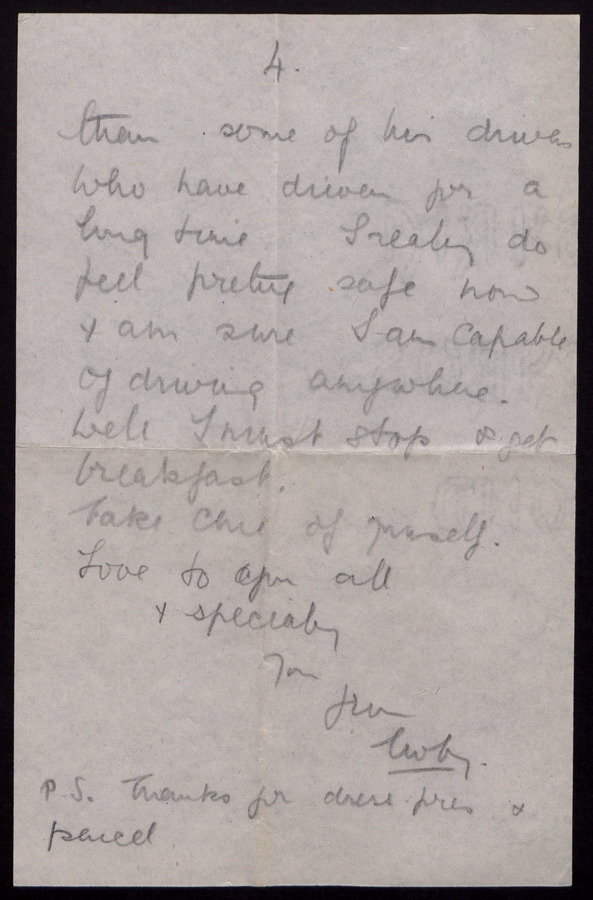 4.
than some of his drivers
who have driven for a
long time I really do
feel pretty safe now
& am sure I am capable
of driving anywhere.
Well I must stop & get
breakfast.
Take care of yourself.
Love to you all
& specially
You
from
P.S. Thanks for dress &
pencil